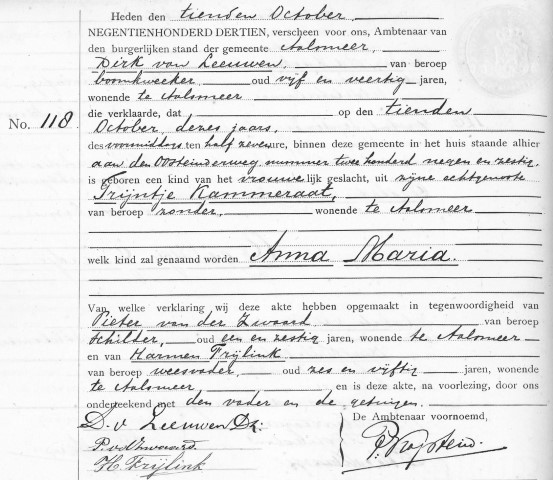 Heden den tienden October
NEGENTIENHONDERD DERTIEN, verscheen voor ons, Ambtenaar van
den burgerlijken stand der gemeente Aalsmeer,
Dirk van Leeuwen, van beroep
boomkweeker, oud vijf en veertig jaren,
wonende te Aalsmeer
die verklaarde, dat op den tienden
No. 118. October, dezes jaars,
des voormiddags ten half zeven ure, binnen deze gemeente in het huis staande alhier
aan den Oosteinderweg nummer twee honderd negen en zestig,
is geboren een kind van het vrouwelijk geslacht, uit zijne echtgenoote
Trijntje Kammeraat,
van beroep zonder, wonende te Aalsmeer
welk kind zal genaamd worden Anna Maria.
Van welke verklaring wij deze akte hebben opgemaakt in tegenwoordigheid van
Pieter van der Zwaard van beroep
schilder, oud een en zestig jaren, wonende te Aalsmeer
en van Harmen Frijlink
van beroep weesvader, oud zes en vijftig jaren, wonende
te Aalsmeer, en is deze akte, na voorlezing, door ons
onderteekend met den vader en de getuigen.
D. v Leeuwen Dz: De Ambtenaar voornoemd,
P. vd Zwaard.
H. Frijlink